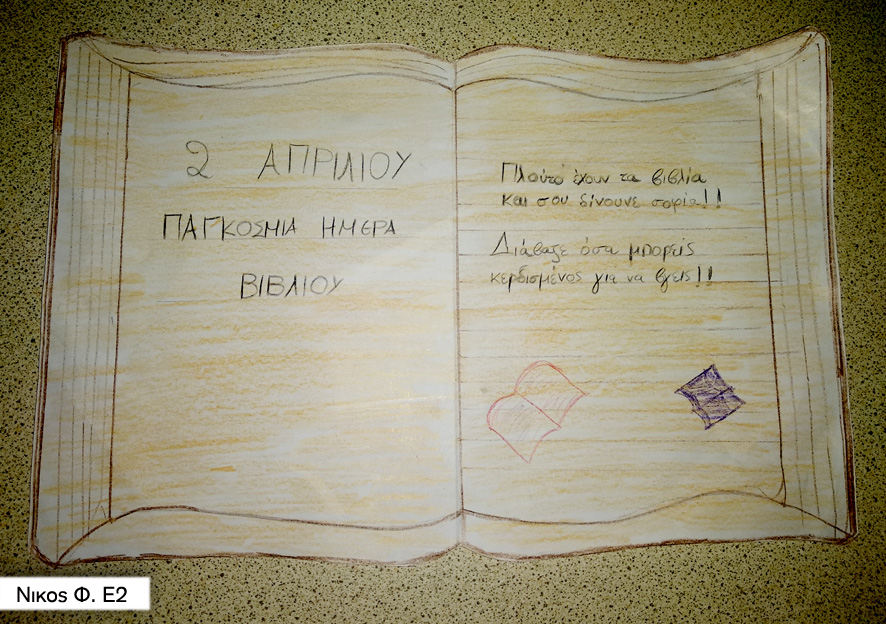 2 ΑΠΡΙΛΙΟΥ
ΠΑΓΚΟΣΜΙΑ ΗΜΕΡΑ
ΒΙΒΛΙΟΥ
Πλούτο έχουν τα βιβλία
και σου δίνουνε σοφία!!
Διάβαζε όσα μπορείς
κερδισμένος για να βγεις!!
Νικος Φ. Ε2